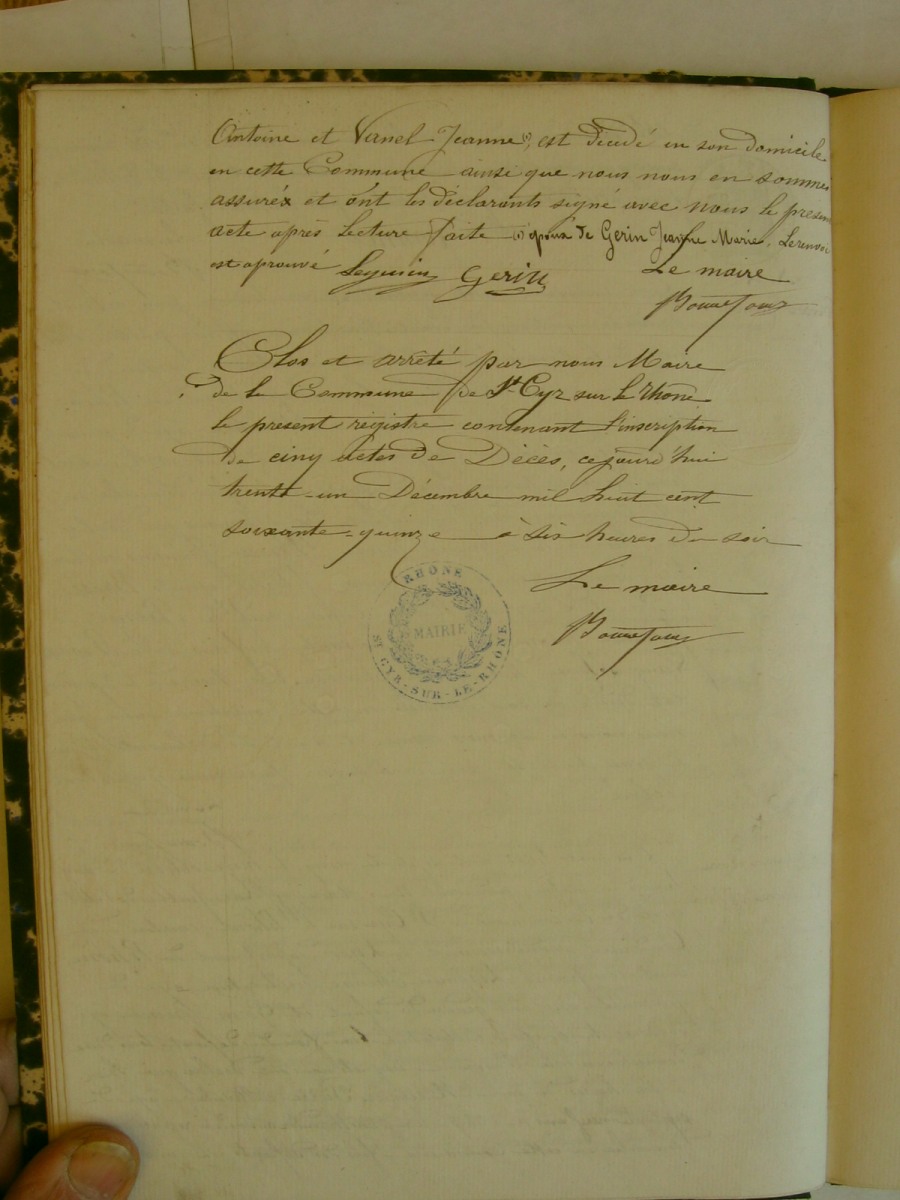 Antoine et Vernel Jeanne (1), est décédé en son domicile
en cette Commune ainsi que nous nous en sommes
assuréx et ont les déclarants signé avec nous le présent
acte après lecture faite (1) époux de Gerin Jeanne Marie. Le renvoi
est aprouvé Seguin Gerin Le maire
Clos et arrêté par nous Maire
de la Commune de St Cyr sur le Rhône
le present régistre contenant l'inscription
de cinq actes de Décès, cejourd'hui
trente-un Décembre mil huit cent
soixante-quinze à six heures du soir
Le maire
RHÔNE
MAIRIE
ST CYR-SUR-LE-RHÔNE